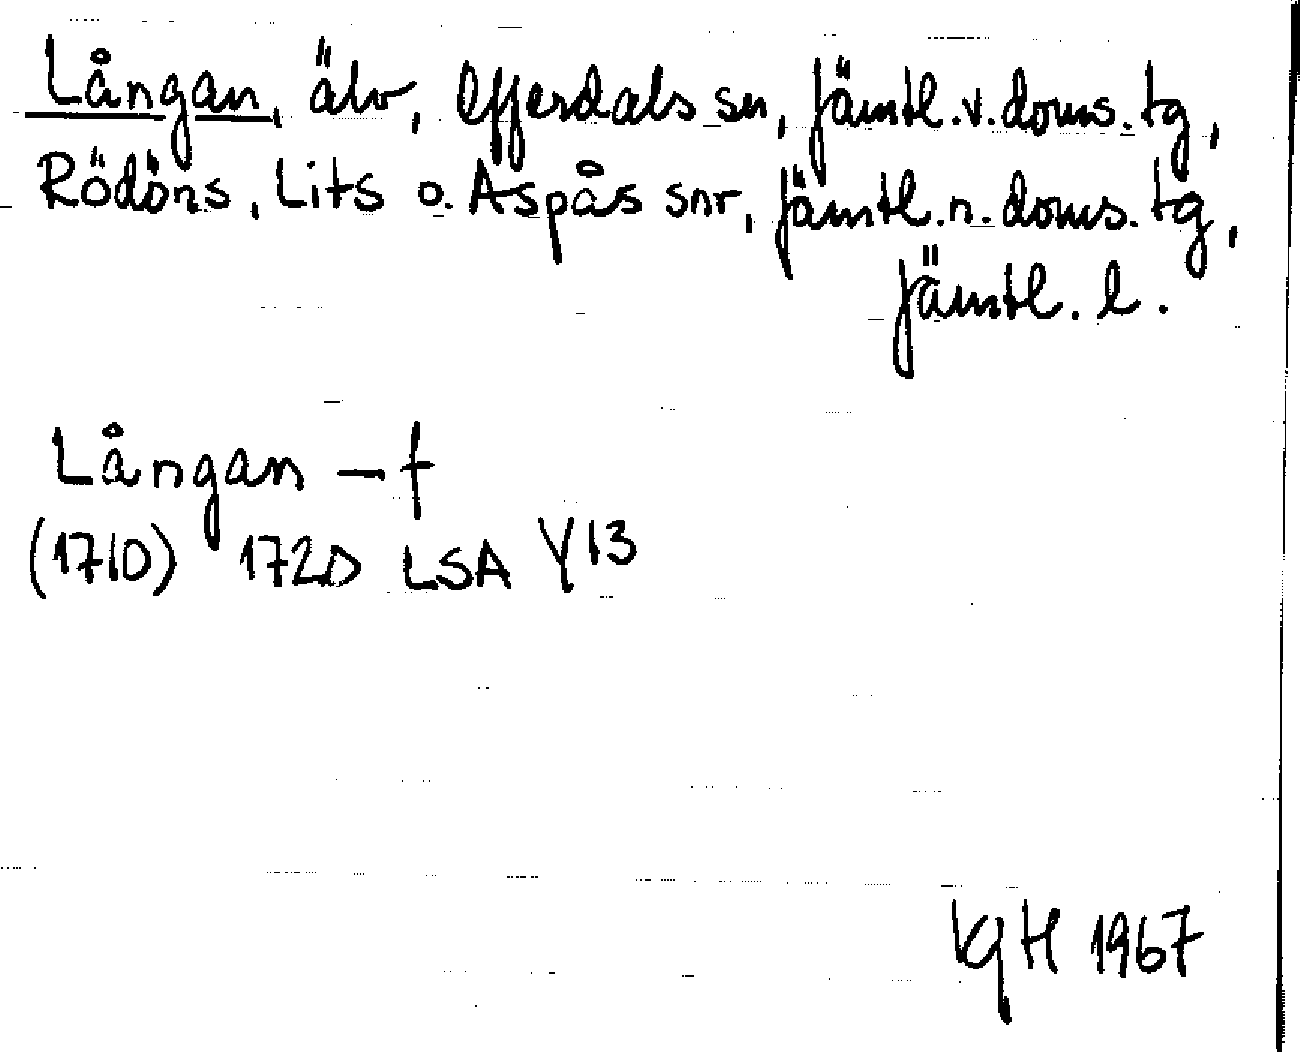 Långan, älv, Offerdals sn, Jämtl. v. doms. tg,
Rödöns, Lits o. Aspås snr, Jämtl. n. doms. tg,
Jämtl. l.
Långan – f
(1710) 1720 LSA Y13
KgH 1967